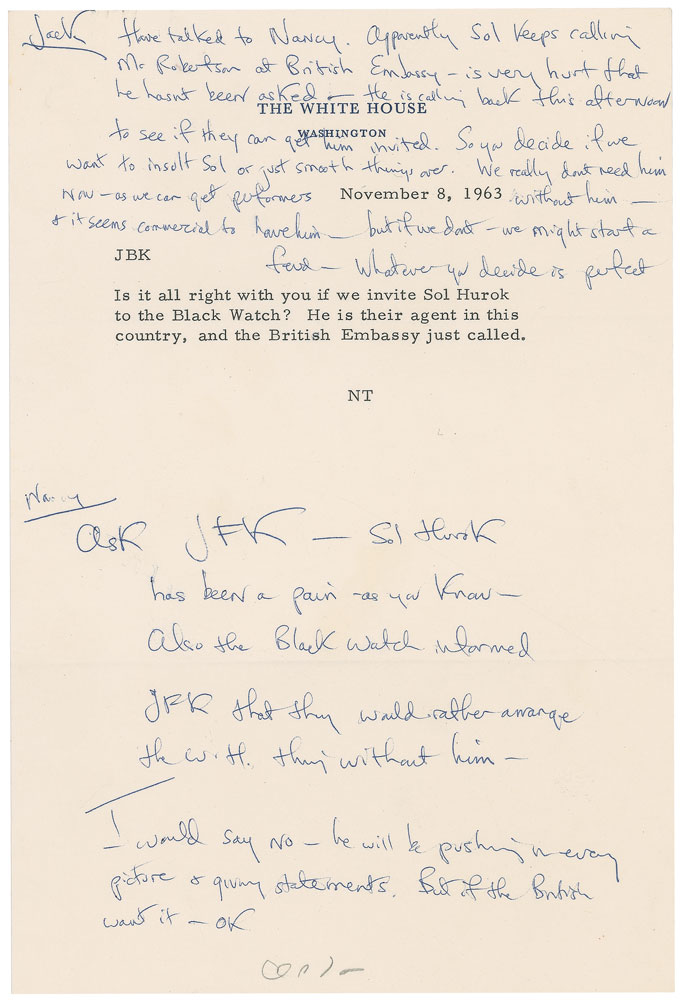 Jack
Have talked to Nancy. Apparently Sol keeps calling
Mr Robertson at British Embassy – is very hurt that
he hasnt been asked – He is calling back this afternoon
THE WHITE HOUSE
WASHINGTON
to see if they can get him invited. So you decide if we
want to insult Sol or just smooth things over. We really dont need him
now – as we can get performers without him –
November 8, 1963
& it seems commercial to have him – but if we dont – we might start a
feud – Whatever you decide is perfect
JBK
Is it all right with you if we invite Sol Hurok
to the Black Watch? He is their agent in this
country, and the British Embassy just called.
NT
Nancy
Ask JFK – Sol Hurok
has been a pain – as you know –
Also the Black Watch informed
JFK that they would rather arrange
the W.H. thing without him –
I would say no – he will be pushing in every
picture & giving statements. But if the British
want it – OK